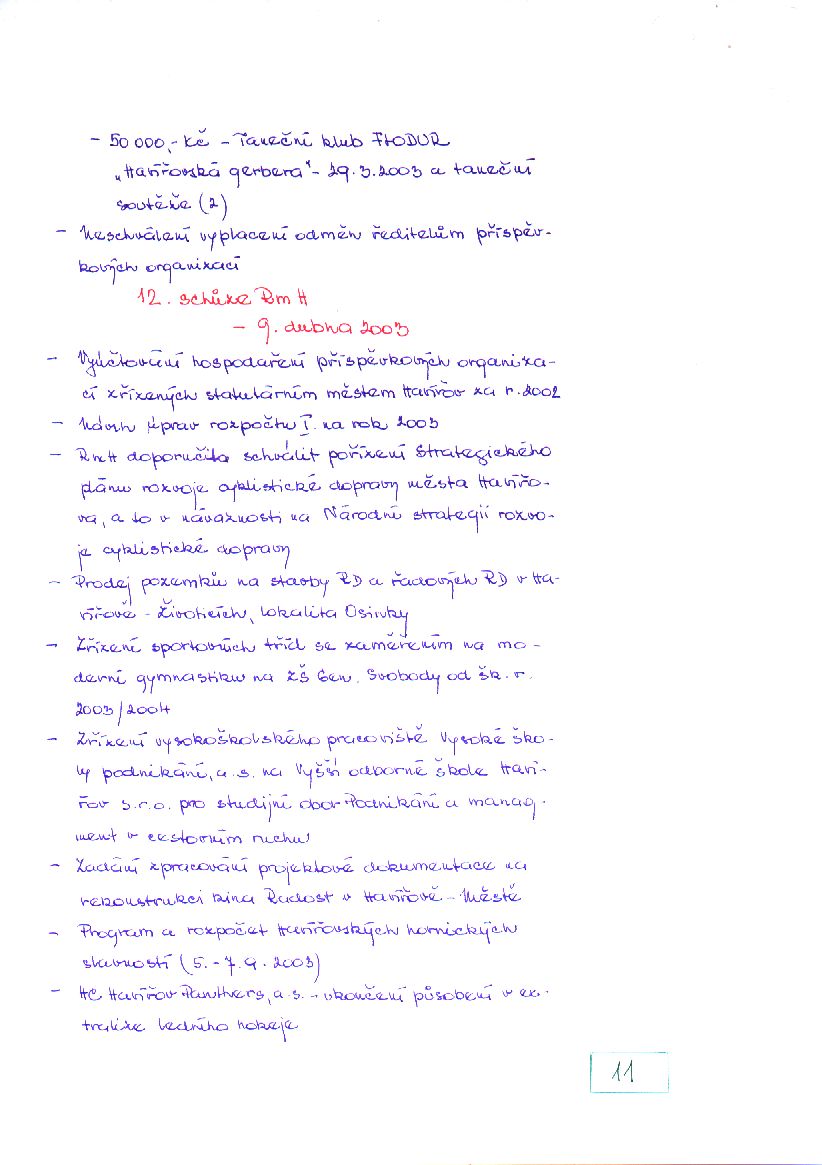 - 50 000,- Kč - Taneční klub FLODUR
„Havířovská gerbera" - 29.3.2003 a taneční
soutěže (2)
- Neschválení vyplacení odměn ředitelům příspěv-
kových organizací
12. schůze RmH
- 9. dubna 2003
- Vyúčtování hospodaření příspěvkových organiza-
cí zřízených statutárním městem Havířov za r. 2002
- Návrh úprav rozpočtu I. na rok 2003
- RmH doporučila schválit pořízení Strategického
plánu rozvoje cyklistické dopravy města Havířo-
va, a to v návaznosti na Národní strategii rozvo-
je cyklistické dopravy
- Prodej pozemků na stavby RD a řadových RD v Ha-
vířově - Životicích, lokalita Osivky
- Zřízení sportovních tříd se zaměřením na mo-
derní gymnastiku na ZŠ Gen. Svobody od šk. r.
2003/2004
- Zřízení vysokoškolského pracoviště Vysoké ško-
ly podnikání, a.s. na Vyšší odborné škole Haví-
řov s.r.o. pro studijní obor Podnikání a manag-
ment v cestovním ruchu
- Zadání zpracování projektové dokumentace na
rekonstrukci kina Radost v Havířově - Městě
- Program a rozpočet Havířovských hornických
slavností (5. - 7.9. 2003)
- HC Havířov Panthers, a.s. - ukončení působení v ex-
tralize ledního hokeje
11